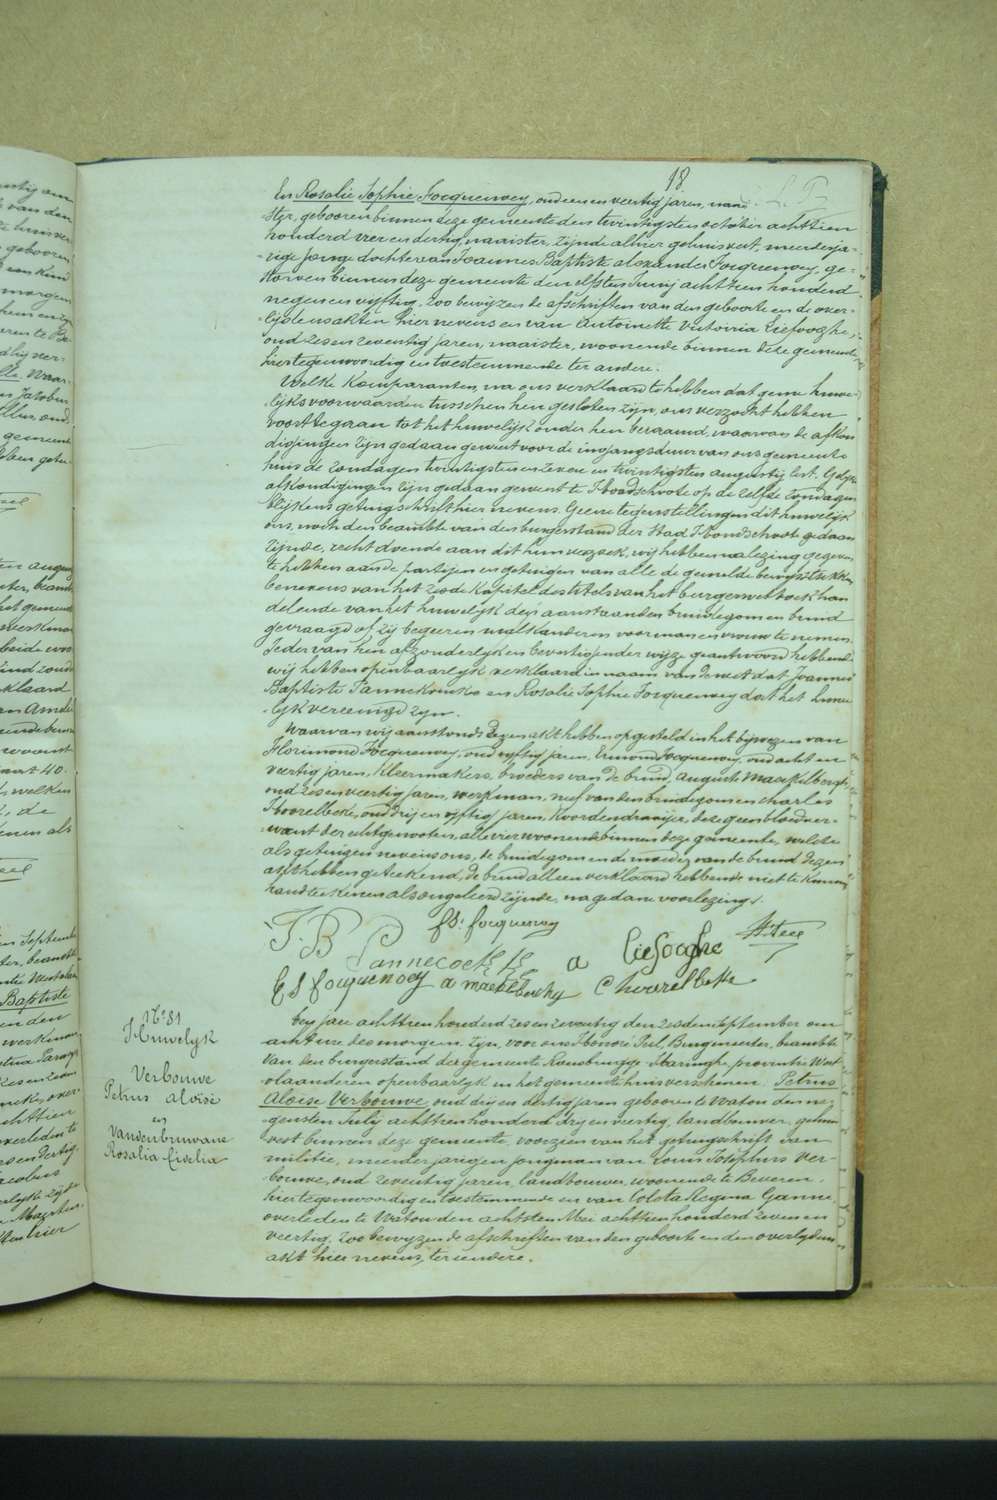 18
En Rosalie Sophie Jocquenoey, oud een en veertig jaren, naai-
ster, geboren binnen deze gemeente den twintigsten october achttien
honderd vier en dertig, naaister, zijnde alhier gehuisvest, meerderja-
rige jonge dochter van Joannes Baptiste Alexander Jocquenoey, ge-
storven binnen deze gemeente den elfsten Juny achttien honderd
negen en vyftig, zoo bewijzen de afschriften van den geboorte en de over-
lijdensakten hier nevens en van Antoinette Victoria Liefooghe,
oud zes en zeventig jaren, naaister, woonende binnen deze gemeente
hier tegenwoordig en toestemmende ter andere.
Welke Komparanten, na ons verklaard te hebben dat geene huwe-
lijks voorwaarden tusschen hen gesloten zijn, ons verzocht hebben
voort te gaan tot het huwelijk onder hen beraamd, waarvan de afkon
digingen zijn gedaan geweest voor de ingangsdeur van ons gemeente
huis de zondagen twintigsten en zeven en twintigsten augusty lest. Gelyke
afkondigingen zijn gedaan geweest te Hondschoote op de zelfde zondagen
blijkens getuigschrift hier nevens. Geene tegenstellingen dit huwelijk
ons, noch den beambte van den burgerstand der Stad Hondschoote gedaan
zijnde, recht doende aan dit hun verzoek, wij hebben na lezing gegeven
te hebben aan de partijen en getuigen van alle de gemelde bewijsstukken
benevens van het zesde Kapitel des titels van het burgerwetboek han
delende van het huwelijk den aanstaanden bruidegom en bruid
gevraagd of zij begeeren malkanderen voor man en vrouw te nemen.
Ieder van hen afzonderlijk en bevestigender wijze geantwoord hebbende
wij hebben openbaarlijk verklaard in naam van de wet dat Joannes
Baptiste Pannekoucke en Rosalie Sophie Jocquenoey door het huwe
lijk vereenigd zijn.
Waarvan wij aanstonds dezen akt hebben opgesteld in het bijwezen van
Florimond Jocquenoey, oud vyftig jaren, Edmond Jocquenoey, oud acht en
veertig jaren, Kleermakers, broeders van de bruid, August Maeckelbergh,
oud zes en veertig jaren, werkman, neef van den bruidegom en Charles
Hoorelbeke, oud drij en vyftig jaren, koordendraaijer, deze geen bloedver-
want der echtgenooten, alle vier woonende binnen deze gemeente, welke
als getuigen nevens ons, de bruidegom en de moeder van de bruid dezen
akt hebben geteekend, de bruid alleen verklaard hebbende niet te kunnen
handteekenen als ongeleerd zijnde, na gedane voorlezing.
J. B Pannecoeke
fs: focquenoey
a Liefooghe
E S focquenoey
C hoorelbeke
N° 81
Huwelyk
Verbouwe
Petrus Aloïse
en
Vandenbruwane
Rosalia
Den jare achttien honderd zes en zeventig den zesden september om
acht ure des morgens. Zijn, voor ons Honoré Feel, Burgmeester, beambte
van den burgerstand der gemeente Rousbrugge Haringhe, provintie West
vlaanderen openbaarlijk in het gemeentehuis verschenen. Petrus
Aloïse Verbouwe, oud drij en dertig jaren geboren te Watou den ne-
gensten July achttien honderd drij en veertig, landbouwer, gehuis
vest binnen deze gemeente, voorzien van het getuigschrift van
militie, meerderjarigen jongman van Louis Josephus Ver-
bouwe, oud zeventig jaren, landbouwer, woonende te Beveren,
hier tegenwoordig en toestemmende en van Colota Regina Ganne
overleden te Watou den achtsten Mei achttien honderd zeven en
veertig. Zoo bewijzen de afschriften van den geboorte en den overlijdens
akt hier nevens, ter eendere.